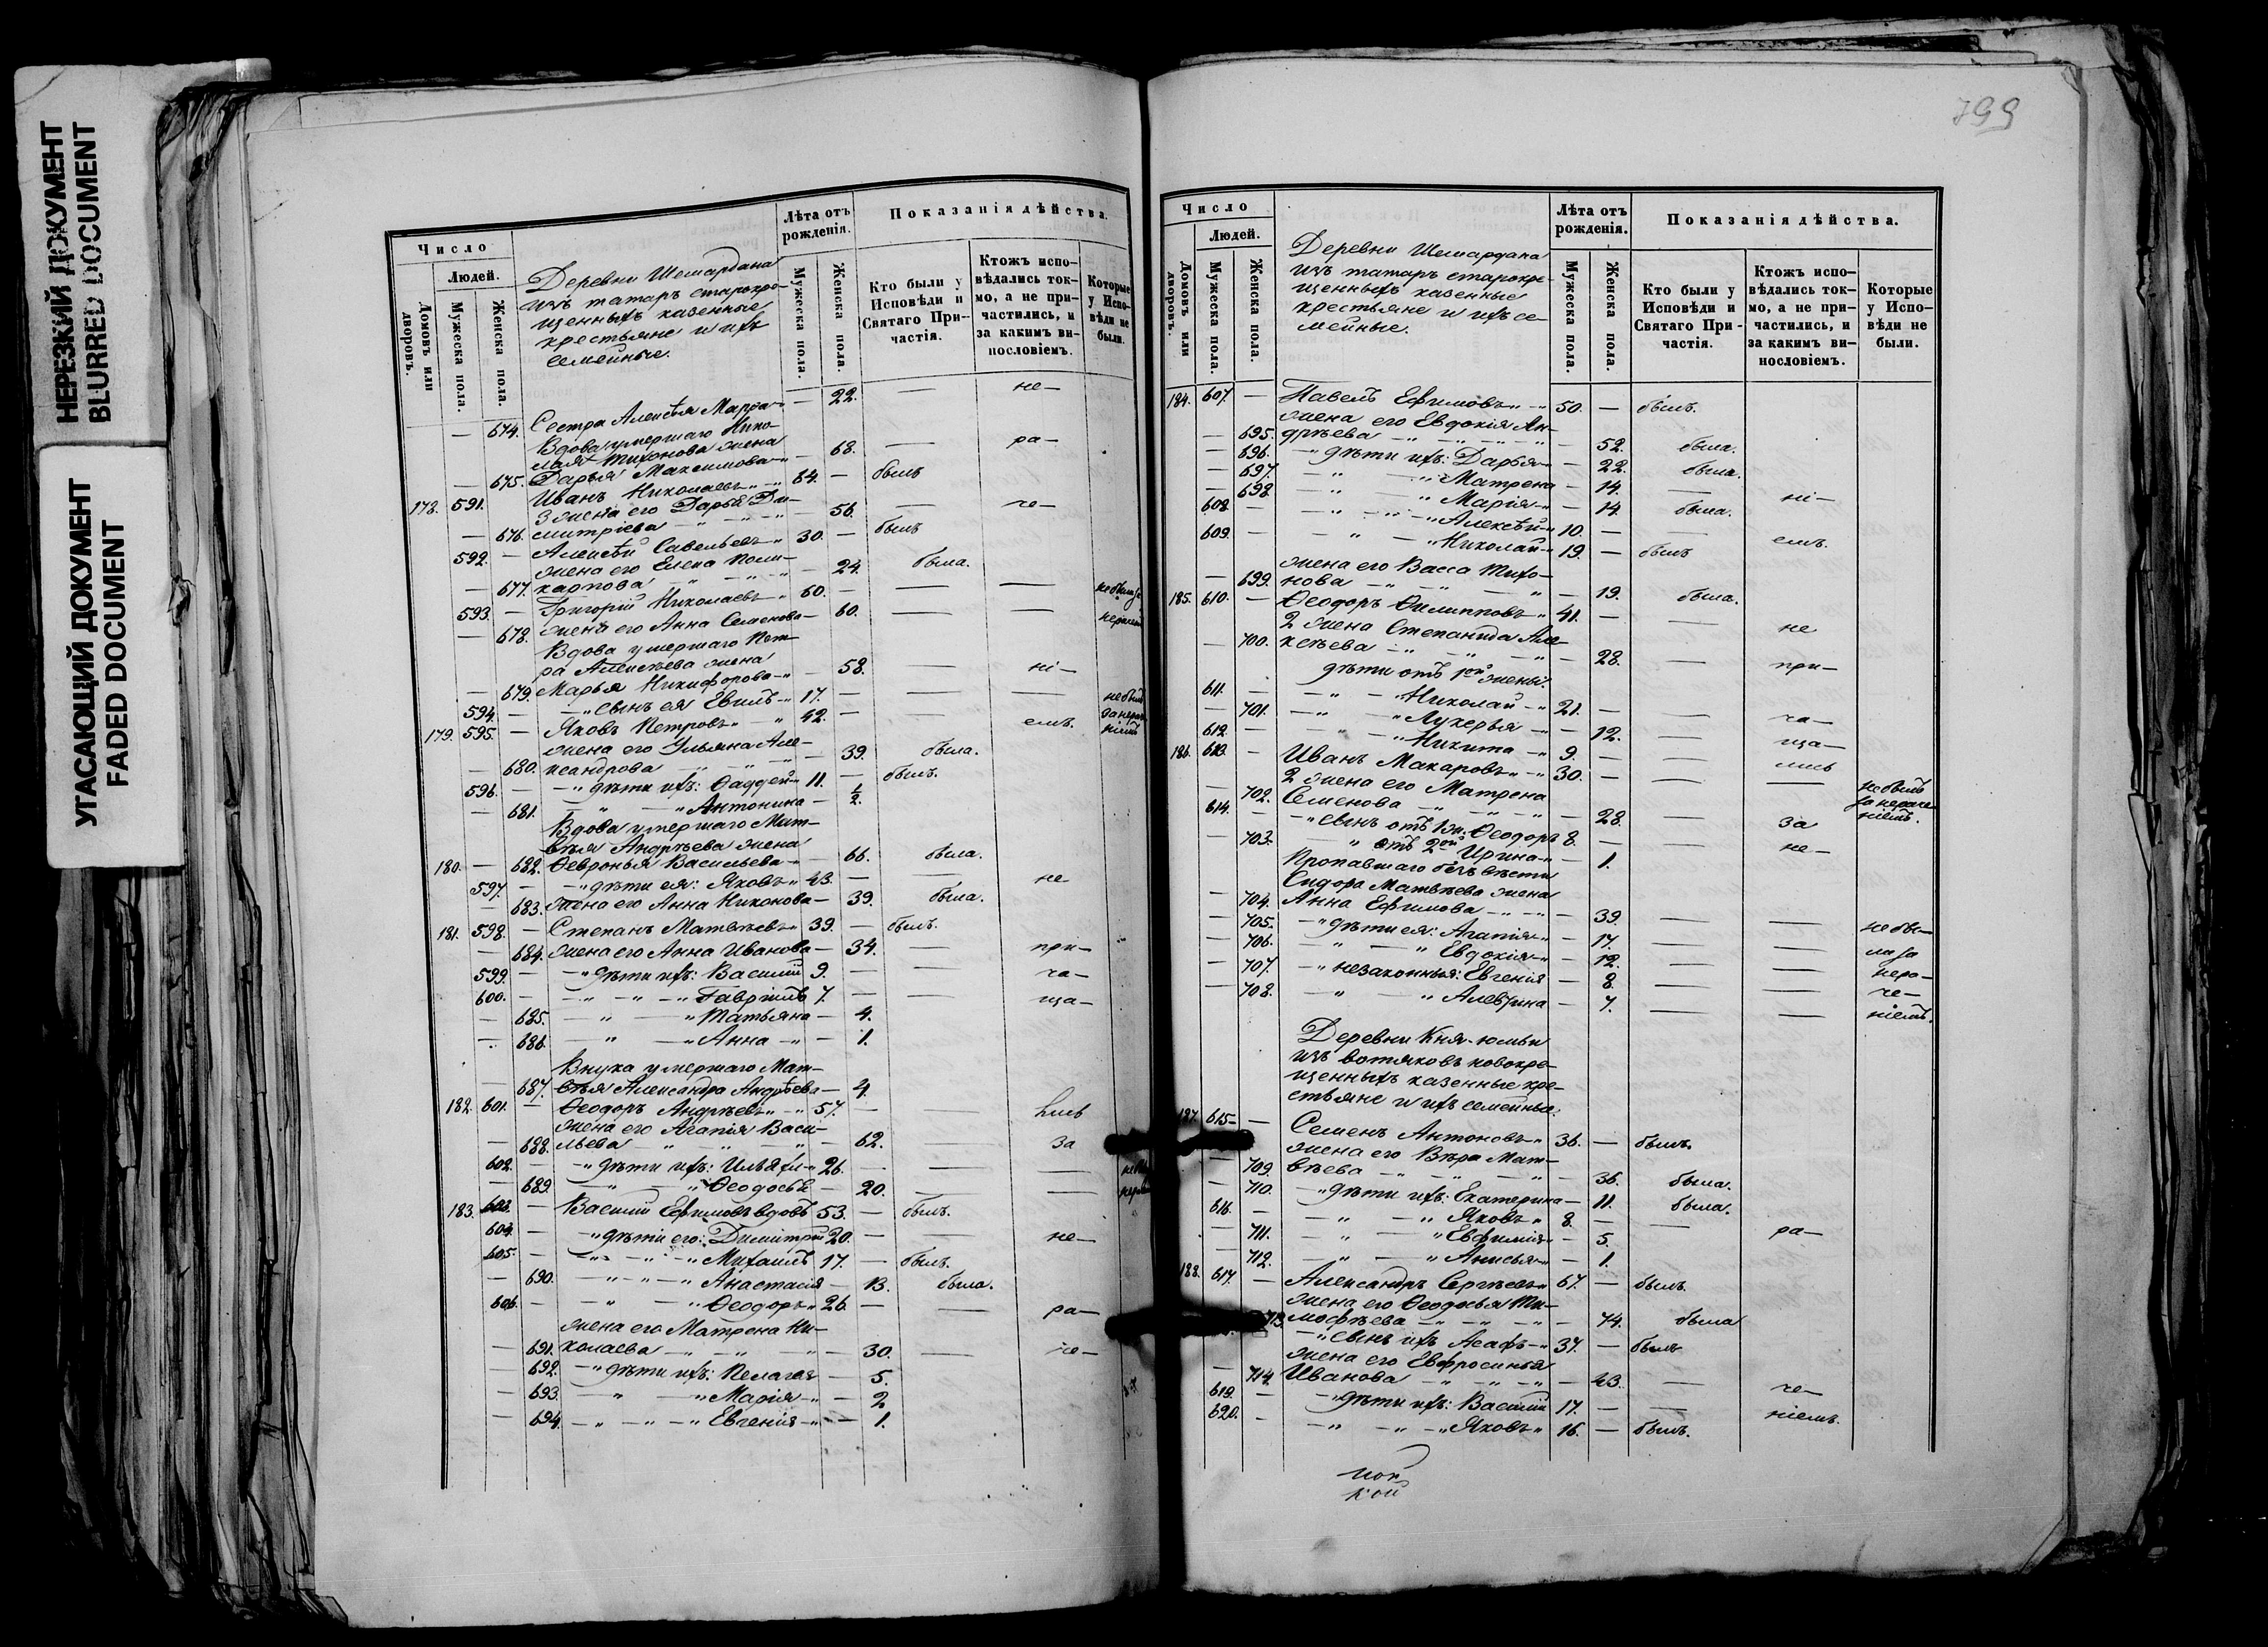 НЕРЕЗКИЙ ДОКУМЕНТ
BLURRED DOCUMENT
УГАСАЮЩИЙ ДОКУМЕНТ
FADED DOCUMENT
Число
Людей.
Домовъ или дворовъ.
Мужеска пола.
Женска пола.
Деревни Шемардана
изъ татаръ старокре-
щенныхъ казенные
крестьяне и ихъ
семейные.
Лѣта отъ рожденія.
Мужеска пола.
Женска пола.
Показанія дѣйства.
Кто были у Исповѣди и Святаго При-частія.
Ктожъ испо-вѣдались ток-мо, а не при-частились, и за какимъ ви-нословіемъ.
Которые у Испо-вѣди не были.
— 674. Сестра Алексѣя Марѳа — 22. — не—
Вдова умершаго Нико-
лая Тихонова жена
— 675. Дарья Максимова — 68. — ра—
178. 591. Иванъ Николаевъ 64. — былъ
3 жена его Дарья Ди-
— 676. митріева — 56. — че—
592. — Алексѣй Савельевъ 30. — былъ
жена его Елена Поли-
— 677. карпова — 24. была.
593. — Григорій Николаевъ 60. — — —
— 678. жена его Анна Семенова — 60. — —
Вдова умершаго Пет-
ра Алексѣева жена
— 679. Марья Никифорова — 58. — ні—
594. — сынъ ея Евилъ 17. — — — не былъ
179. 595. — Яковъ Петровъ 42. — емъ.
жена его Ульяна Але-
— 680. ксандрова — 39. была.
596. — дѣти ихъ: Ѳаддей 11. — былъ.
— 681. Антонина — 1/2.
Вдова умершаго Мат-
вѣя Андрѣева жена
180. — 682. Ѳевронья Васильева — 66. была.
597. — дѣти ея: Яковъ 43. — — не
— 683. жена его Анна Никонова — 39. была.
181. 598. — Степанъ Матвѣевъ 39. — былъ.
— 684. жена его Анна Иванова — 34. — при—
599. — дѣти ихъ: Василій 9. — — ча—
600. — Гавріилъ 7. — — ща—
— 685. Татьяна — 4.
— 686. Анна — 1.
Внука умершаго Мат-
— 687. вѣя Александра Андрѣева — 4.
182. 601. — Ѳеодоръ Андрѣевъ 57. — — лись
жена его Агапія Васи-
— 688. льева — 62. — за
602. — дѣти ихъ: Илья 26. — — —
— 689. Ѳеодосья — 20. — —
183. 603. — Василій Ефимовъ вдовъ 53. — былъ.
604. — дѣти его: Димитрій 20. — — не—
605. — Михаилъ 17. — былъ.
— 690. Анастасія — 13. была.
606. — Ѳеодоръ 26. — — ра—
жена его Матрена Ни-
— 691. колаева — 30. — че—
— 692. дѣти ихъ: Пелагея — 5.
— 693. Марія — 2
— 694. Евгенія — 1.
799
Число
Людей.
Домовъ или дворовъ.
Мужеска пола.
Женска пола.
Деревни Шемардана
изъ татаръ старокре-
щенныхъ казенные
крестьяне и ихъ се-
мейные.
Лѣта отъ рожденія.
Мужеска пола.
Женска пола.
Показанія дѣйства.
Кто были у Исповѣди и Святаго При-частія.
Ктожъ испо-вѣдались ток-мо, а не при-частились, и за какимъ ви-нословіемъ.
Которые у Испо-вѣди не были.
184. 607. — Павелъ Ефимовъ 50. — былъ.
жена его Евдокія Ан-
— 695. дрѣева — 52. была.
— 696. дѣти ихъ: Дарья — 22. была.
— 697. Матрена — 14. — ні—
— 698. Марія — 14. была.
608. — Алексѣй 10. — — емъ.
609. — Николай 19. — былъ
жена его Васса Тихо-
— 699. нова — 19. была.
185. 610. — Ѳеодоръ Филипповъ 41. — — не
2 жена Степанида Але-
— 700. ксѣева — 28. — при—
дѣти отъ 1ой жены:
611. — Николай 21. — — ча—
— 701. Лукерья — 12. — ща—
612. — Никита 9. — — лись
186. 613. Иванъ Макаровъ 30. — — — не былъ
за нераче-
ніемъ.
2 жена его Матрена
— 702. Семенова — 28. — за
614. — сынъ отъ 1й: Ѳеодоръ 8. — — не—
— 703. отъ 2ой Ирина — 1.
Пропавшаго безъ вѣсти
Сидора Матвѣева жена
— 704. Анна Ефимова — 39. — — не бы—
— 705. дѣти ея: Агапія — 17. — — ла за
— 706. Евдокія — 12. — — нера—
— 707. незаконныя: Евгенія — 8. — — че—
— 708. Алевтина — 7. — — ніемъ.
Деревни Кня-юмьи
изъ вотяковъ новокре-
щенныхъ казенные кре-
стьяне и ихъ семейные.
187. 615. — Семенъ Антоновъ 36. — былъ.
жена его Вѣра Мат-
— 709. вѣева — 36. была.
— 710. дѣти ихъ: Екатерина — 11. была.
616. — Яковъ 8. — — ра—
— 711. Евфимія — 5.
— 712. Анисья — 1.
188. 617. — Александръ Сергѣевъ 67. — былъ.
жена его Ѳеодосья Ти-
713. мофѣева — 74. была
сынъ ихъ Асафъ 37. — былъ
жена его Евфросинья
— 714. Иванова — 43. — че—
619. — дѣти ихъ: Василій 17. — — ніемъ.
620. — Яковъ 16. — былъ.